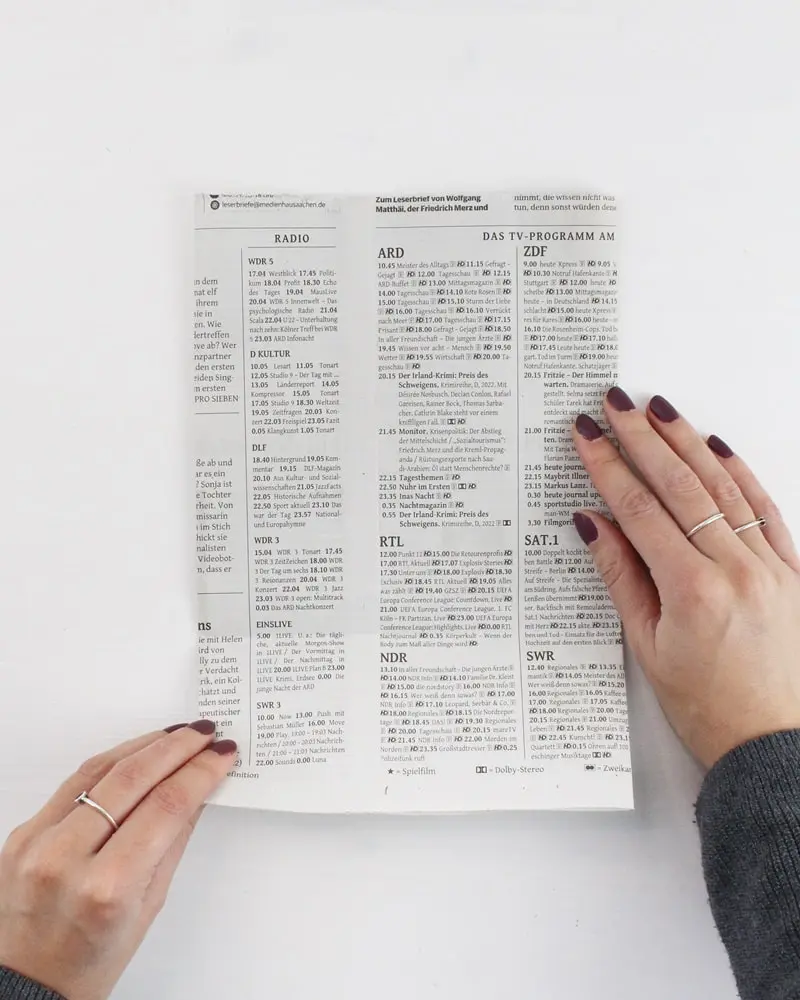 leserbriefe@medienhausaachen.de
n dem
nat elf
ihrem
sie in
en. Wie
ertreffen
ve ab? Wer
nzpartner
den ersten
eiden Sing-
m ersten
PRO SIEBEN
ße ab und
ar es ein
? Sonja ist
e Tochter
rheit. Von
missarin
im Stich
hickt sie
nalisten
Videobot-
n, dass er
ns
ie mit Helen
ird von
lly zu dem
r Verdacht
rik, ein Kol-
chätzt und
nden seiner
speutischer
t ein
efinition
RADIO
WDR 5
17.04 Westblick 17.45 Politi-
kum 18.04 Profit 18.30 Echo
des Tages 19.04 MausLive
20.04 WDR 5 Innenwelt – Das
psychologische Radio 21.04
Scala 22.04 U22 – Unterhaltung
nach zehn: Kölner Treff bei WDR
5 23.03 ARD Infonacht
D KULTUR
10.05 Lesart 11.05 Tonart
12.05 Studio 9 – Der Tag mit ...
13.05 Länderreport 14.05
Kompressor 15.05 Tonart
17.05 Studio 9 18.30 Weltzeit
19.05 Zeitfragen 20.03 Kon-
zert 22.03 Freispiel 23.05 Fazit
0.05 Klangkunst 1.05 Tonart
DLF
18.40 Hintergrund 19.05 Kom-
mentar 19.15 DLF-Magazin
20.10 Aus Kultur- und Sozial-
wissenschaften 21.05 JazzFacts
22.05 Historische Aufnahmen
22.50 Sport aktuell 23.10 Das
war der Tag 23.57 National-
und Europahymne
WDR 3
15.04 WDR 3 Tonart 17.45
WDR 3 ZeitZeichen 18.00 WDR
3 Der Tag um sechs 18.10 WDR
3 Resonanzen 20.04 WDR 3
Konzert 22.04 WDR 3 Jazz
23.03 WDR 3 open: Multitrack
0.03 Das ARD Nachtkonzert
EINSLIVE
5.00 1LIVE. U. a.: Die tägli-
che, aktuelle Morgen-Show in
1LIVE / Der Vormittag in
1LIVE / Der Nachmittag in
1LIVE 20.00 1LIVE Plan B 23.00
1LIVE Krimi. Erdsee 0.00 Die
junge Nacht der ARD
SWR 3
10.00 Now 13.00 Push mit
Sebastian Müller 16.00 Move
19.00 Play. 19:00 – 19:03 Nach-
richten / 20:00 – 20:03 Nachrich-
ten / 21:00 – 21:03 Nachrichten
22.00 Sounds 0.00 Luna
Zum Leserbrief von Wolfgang
Matthäi, der Friedrich Merz und
nimmt, die wissen nicht was
tun, denn sonst würden dene
DAS TV-PROGRAMM AM
ARD
10.45 Meister des Alltags HD 11.15 Gefragt -
Gejagt HD 12.00 Tagesschau HD 12.15
ARD-Buffet HD 13.00 Mittagsmagazin HD
14.00 Tagesschau HD 14.10 Rote Rosen HD
15.00 Tagesschau HD 15.10 Sturm der Liebe
HD 16.00 Tagesschau HD 16.10 Verrückt
nach Meer HD 17.00 Tagesschau HD 17.15
Brisant HD 18.00 Gefragt - Gejagt HD 18.50
In aller Freundschaft – Die jungen Ärzte HD
19.45 Wissen vor acht – Mensch HD 19.50
Wetter HD 19.55 Wirtschaft HD 20.00 Ta-
gesschau HD
20.15 Der Irland-Krimi: Preis des
Schweigens. Krimireihe, D, 2022. Mit
Désirée Nosbusch, Declan Conlon, Rafael
Gareisen, Rainer Bock, Thomas Sarba-
cher. Cathrin Blake steht vor einem
kniffligen Fall. HD
21.45 Monitor. Krisenpolitik: Der Abstieg
der Mittelschicht / „Sozialtourismus“:
Friedrich Merz und die Kreml-Propag-
anda / Rüstungsexporte nach Sau-
di-Arabien: Öl statt Menschenrechte?
22.15 Tagesthemen HD
22.50 Nuhr im Ersten HD
23.35 Inas Nacht HD
0.35 Nachtmagazin HD
0.55 Der Irland-Krimi: Preis des
Schweigens. Krimireihe, D, 2022
RTL
12.00 Punkt 12 HD 15.00 Die Retourenprofis HD
17.00 RTL Aktuell HD 17.07 Explosiv Stories HD
17.30 Unter uns HD 18.00 Explosiv HD 18.30
Exclusiv HD 18.45 RTL Aktuell HD 19.05 Alles
was zählt HD 19.40 GZSZ HD 20.15 UEFA
Europa Conference League: Countdown. Live HD
21.00 UEFA Europa Conference League. 1. FC
Köln – FK Partizan. Live HD 23.00 UEFA Europa
Conference League: Highlights. Live HD 0.00 RTL
Nachtjournal HD 0.35 Körperkult – Wenn der
Body zum Maß aller Dinge wird HD
NDR
13.10 In aller Freundschaft – Die jungen Ärzte
HD 14.00 NDR Info HD 14.10 Familie Dr. Kleist
HD 15.00 die nordstory HD 16.00 NDR Info
HD 16.15 Wer weiß denn sowas? HD 17.00
NDR Info HD 17.10 Leopard, Seebär & Co.
HD 18.00 Regionales HD 18.15 Die Nordrepor-
tage HD 18.45 DAS! HD 19.30 Regionales
HD 20.00 Tagesschau HD 20.15 mareTV
HD 21.45 NDR Info HD 22.00 Morden im
Norden HD 23.35 Großstadtrevier HD 0.25
ZDF
9.00 heute Xpress HD 9.05
HD 10.30 Notruf Hafenkante
Stuttgart HD 12.00 heute
scheibe HD 13.00 Mittagsmagazin
heute – in Deutschland HD 14.15
schlacht HD 15.00 heute Xpress
res für Rares HD 16.00 heute –
16.10 Die Rosenheim-Cops. Tod
HD 17.00 heute HD 17.10
HD 17.45 Leute heute HD 18.0
gart. Tod im Turm HD 19.00 heu
Notruf Hafenkante. Schatzjäger
20.15 Fritzie – Der Himmel m
warten. Dramaserie.
gestellt. Selma setzt
Schüler Tarek hat
entdeckt und macht
romantisch
21.00 Fritzie –
ten.
Mit Tanja
Florian
21.45 heute journal
22.15 Maybrit Illner
23.15 Markus Lanz.
0.30 heute journal up
0.45 sportstudio live.
man-WM
3.30 Filmgor
SAT.1
10.00 Doppelt kocht
ben Battle HD 12.00 Auf
Streife – Berlin HD 14.00
Auf Streife – Die Spezialiste
am Südring. Aufs falsche Pferd
Lenßen übernimmt HD 19.00
ser. Backfisch mit Remoulade
Sat.1 Nachrichten HD 20.15 Doc
mit Herz HD 22.15 akte HD 23.15
ben und Tod – Einsatz für die Luft
Hochzeit auf den ersten Blick HD
SWR
12.40 Regionales HD 13.35
mantik HD 14.05 Meister des Al
Wer weiß denn sowas? HD 15.20
16.00 Regionales HD 16.05 Kaffee
17.00 Regionales HD 17.05 Kaffe
HD 18.00 Regionales HD
20.15 Regionales HD 21.00
Leben HD 21.45 Regionales
HD 22.45 Kunscht! HD 23.1
Quartett HD 0.15 Ohren auf!
eschinger Musiktage HD
★ = Spielfilm
= Dolby-Stereo
= Zweika